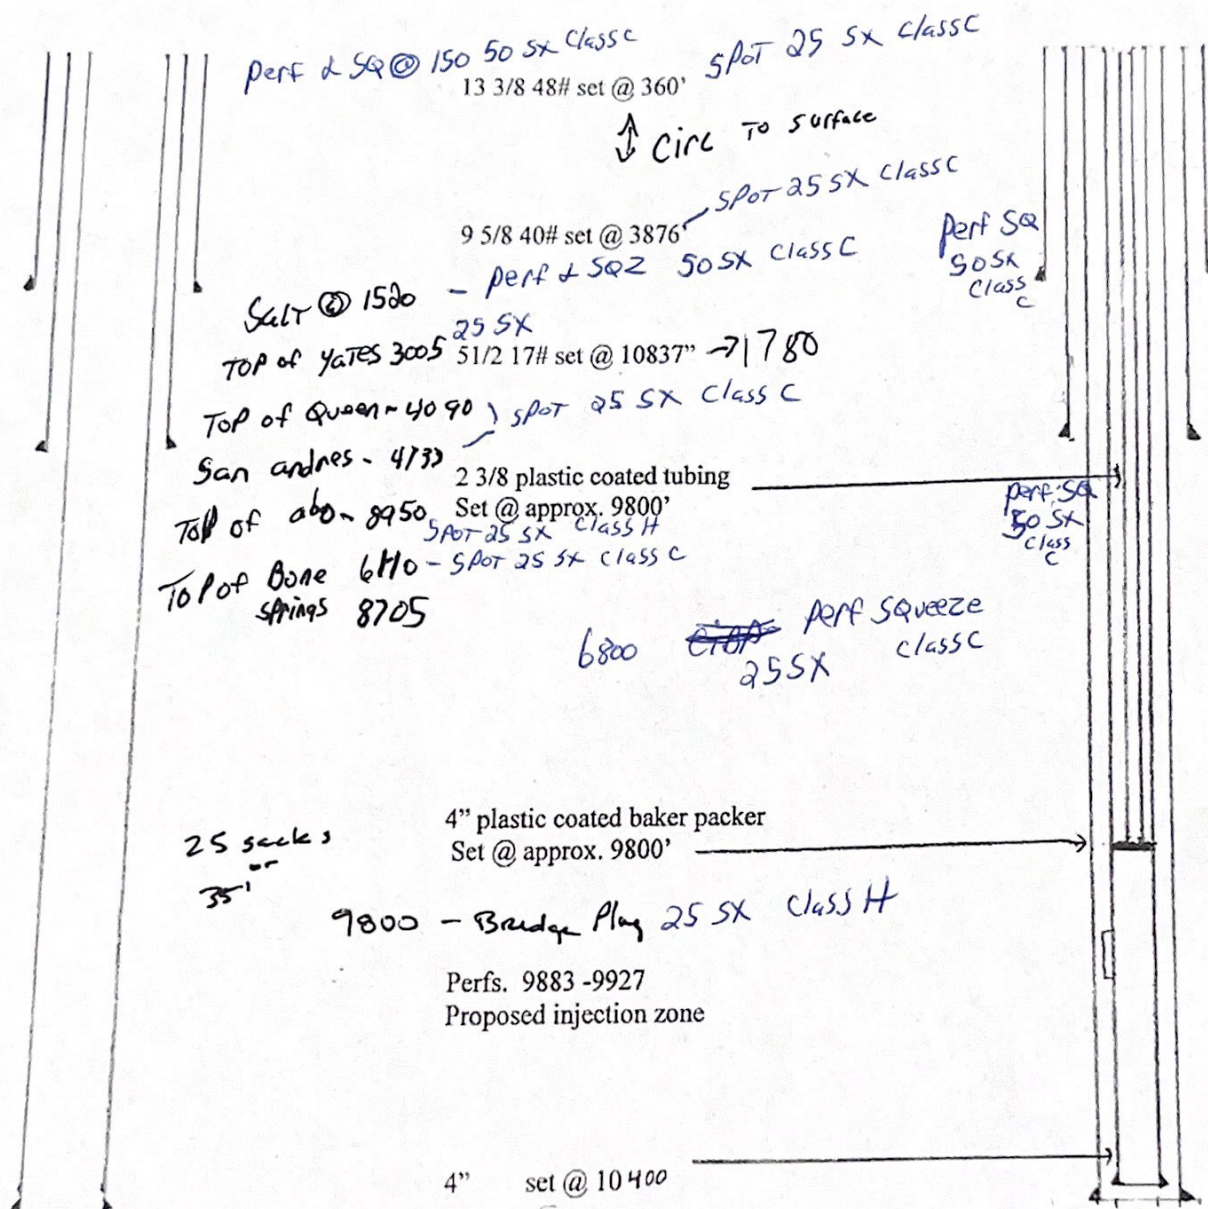 Perf & SQ @ 150 50 SX Class C
SPOT 25 SX Class C
13 3/8 48# set @ 360'
Circ To Surface
SPOT 25 SX Class C
9 5/8 40# set @ 3876'
Perf SQ
50 SX
Class
C
Salt @ 1520 - Perf & SQZ 50 SX Class C
25 SX
Top of Yates 3005
51/2 17# set @ 10837” → 1780
Top of Queen - 4090 SPOT 25 SX Class C
San andres - 4733
2 3/8 plastic coated tubing
Set @ approx. 9800’
Perf. SQ
50 SX
Class
C
Top of abo - 8950 SPOT 25 SX Class H
Top of Bone 6110 - SPOT 25 SX Class C
Springs 8705
6800 Perf Squeeze
25 SX Class C
4” plastic coated baker packer
Set @ approx. 9800’
25 sacks
or
35'
9800 - Bridge Plug 25 SX Class H
Perfs. 9883 -9927
Proposed injection zone
4” set @ 10400